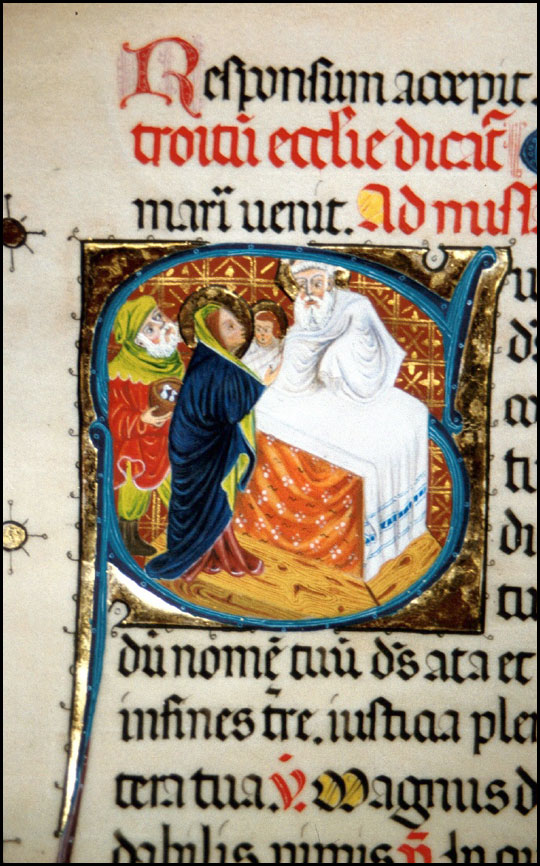 Responsum accepit.
troitū ecclsie dicat̄
mari᷒ uenit. Ad miss
S u
d
tu
di
tu
dū nomē tuū dˢ ata et
in fines tre. iusticia plen
tera tua. V̇. Magnus d
dabilis nimis In qu